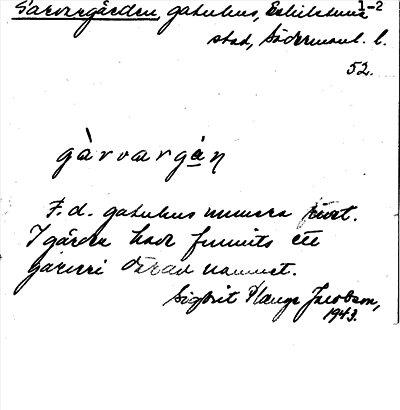 Garvargården, gatuhus, Eskilstuna 1-2
stad, Södermanl. l.
52.
gàrvargán
F.d. gatuhus numera rivet.
I gården hade funnits ett
garveri därav namnet.
Sigbrit Plænge Jacobson,
1943.